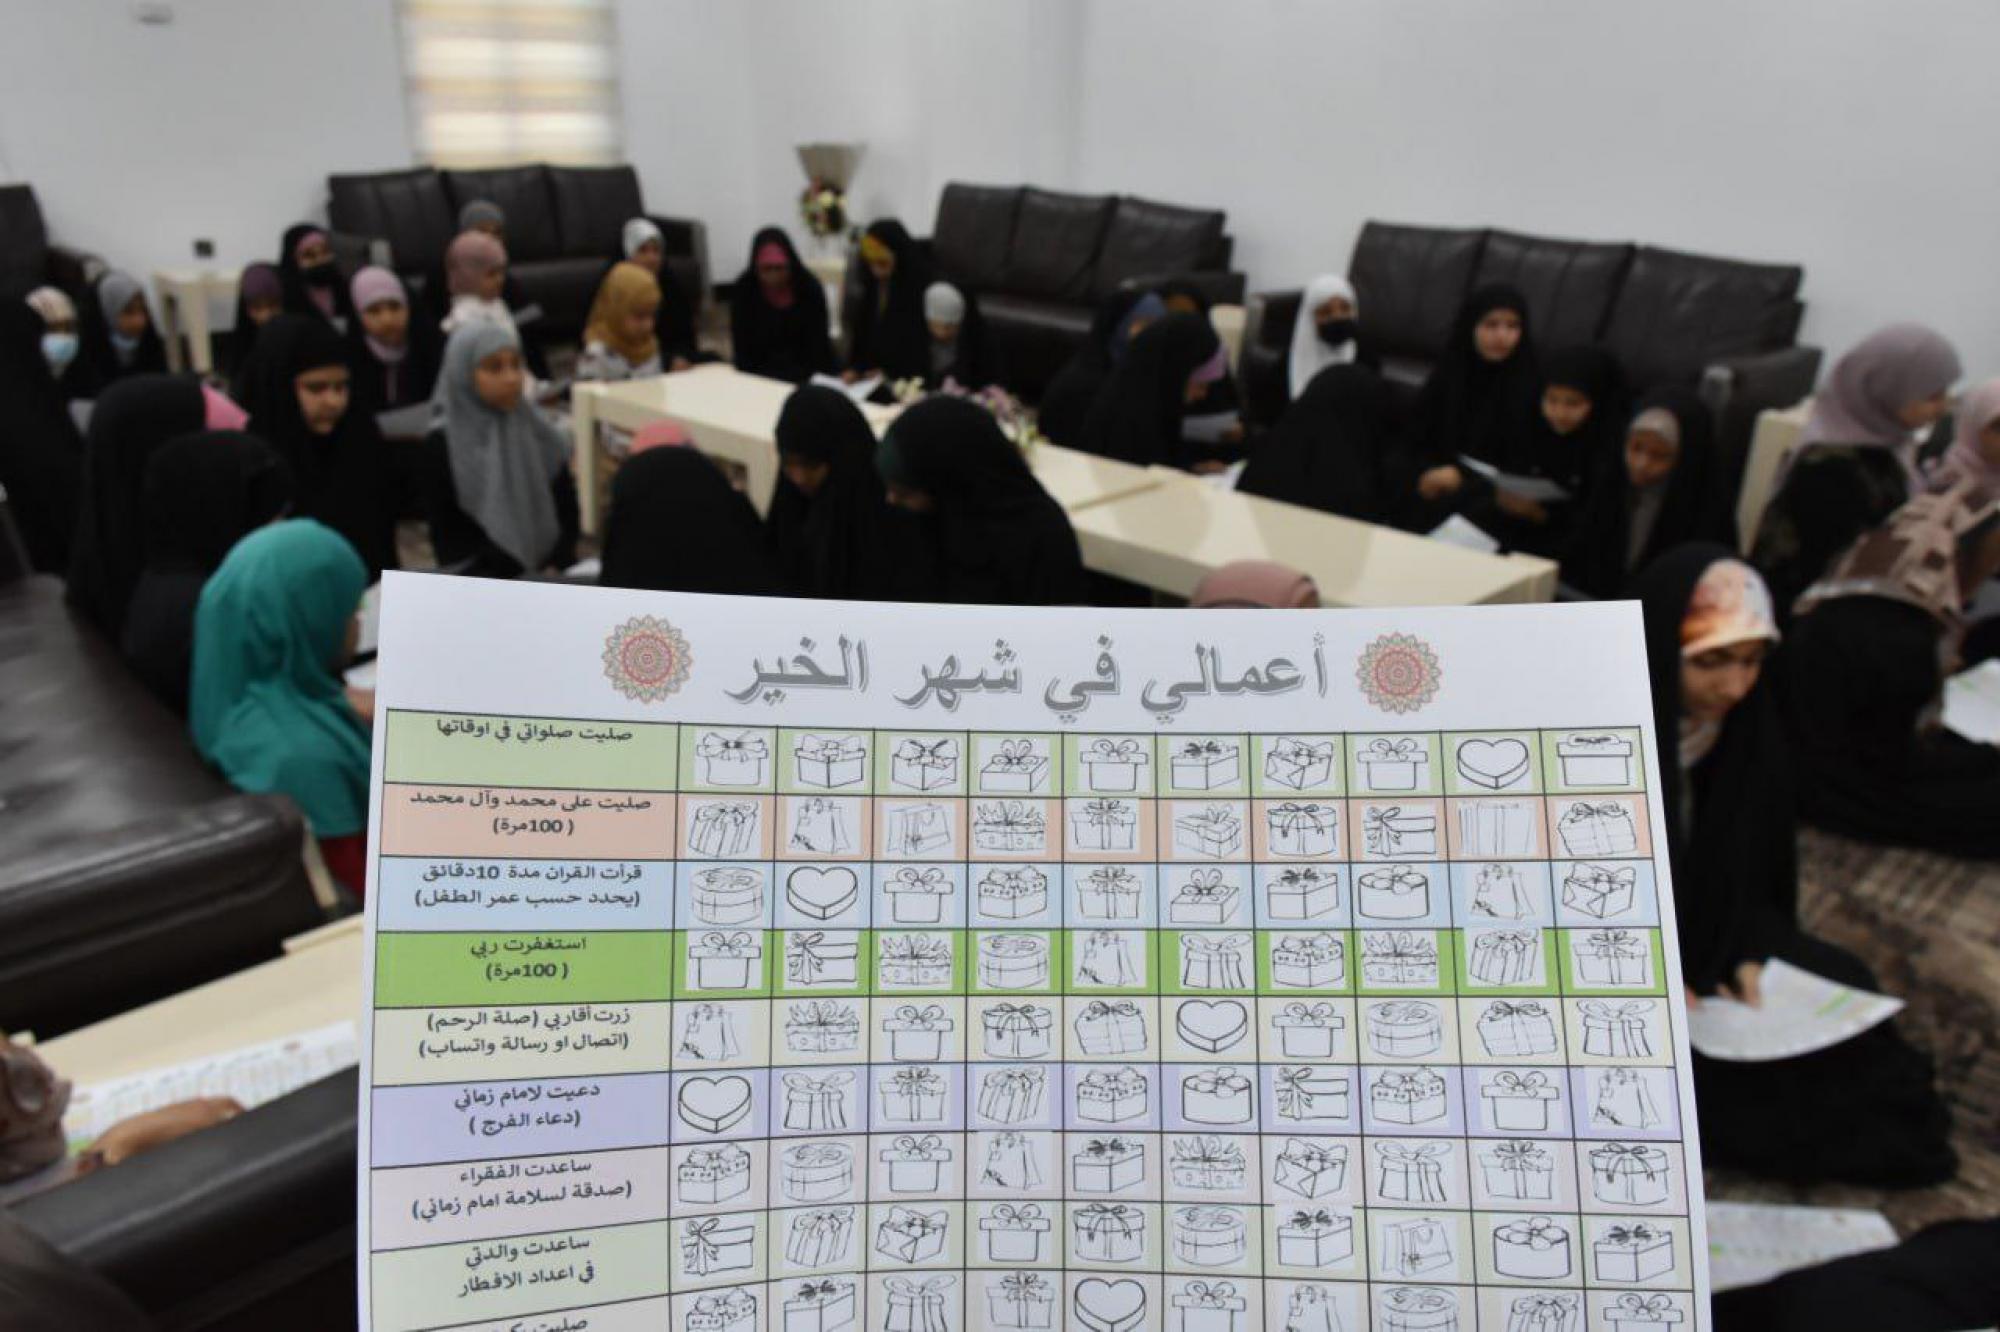 أعمالي في شهر الخير
صليت صلواتي في اوقاتها
صليت على محمد وآل محمد
( 100مرة)
قرأت القران مدة 10دقائق
(يحدد حسب عمر الطفل)
استغفرت ربي
( 100مرة)
زرت أقاربي (صلة الرحم)
(اتصال او رسالة واتساب)
دعيت لامام زماني
(دعاء الفرج )
ساعدت الفقراء
(صدقة لسلامة امام زماني)
ساعدت والدتي
في اعداد الافطار
صليت